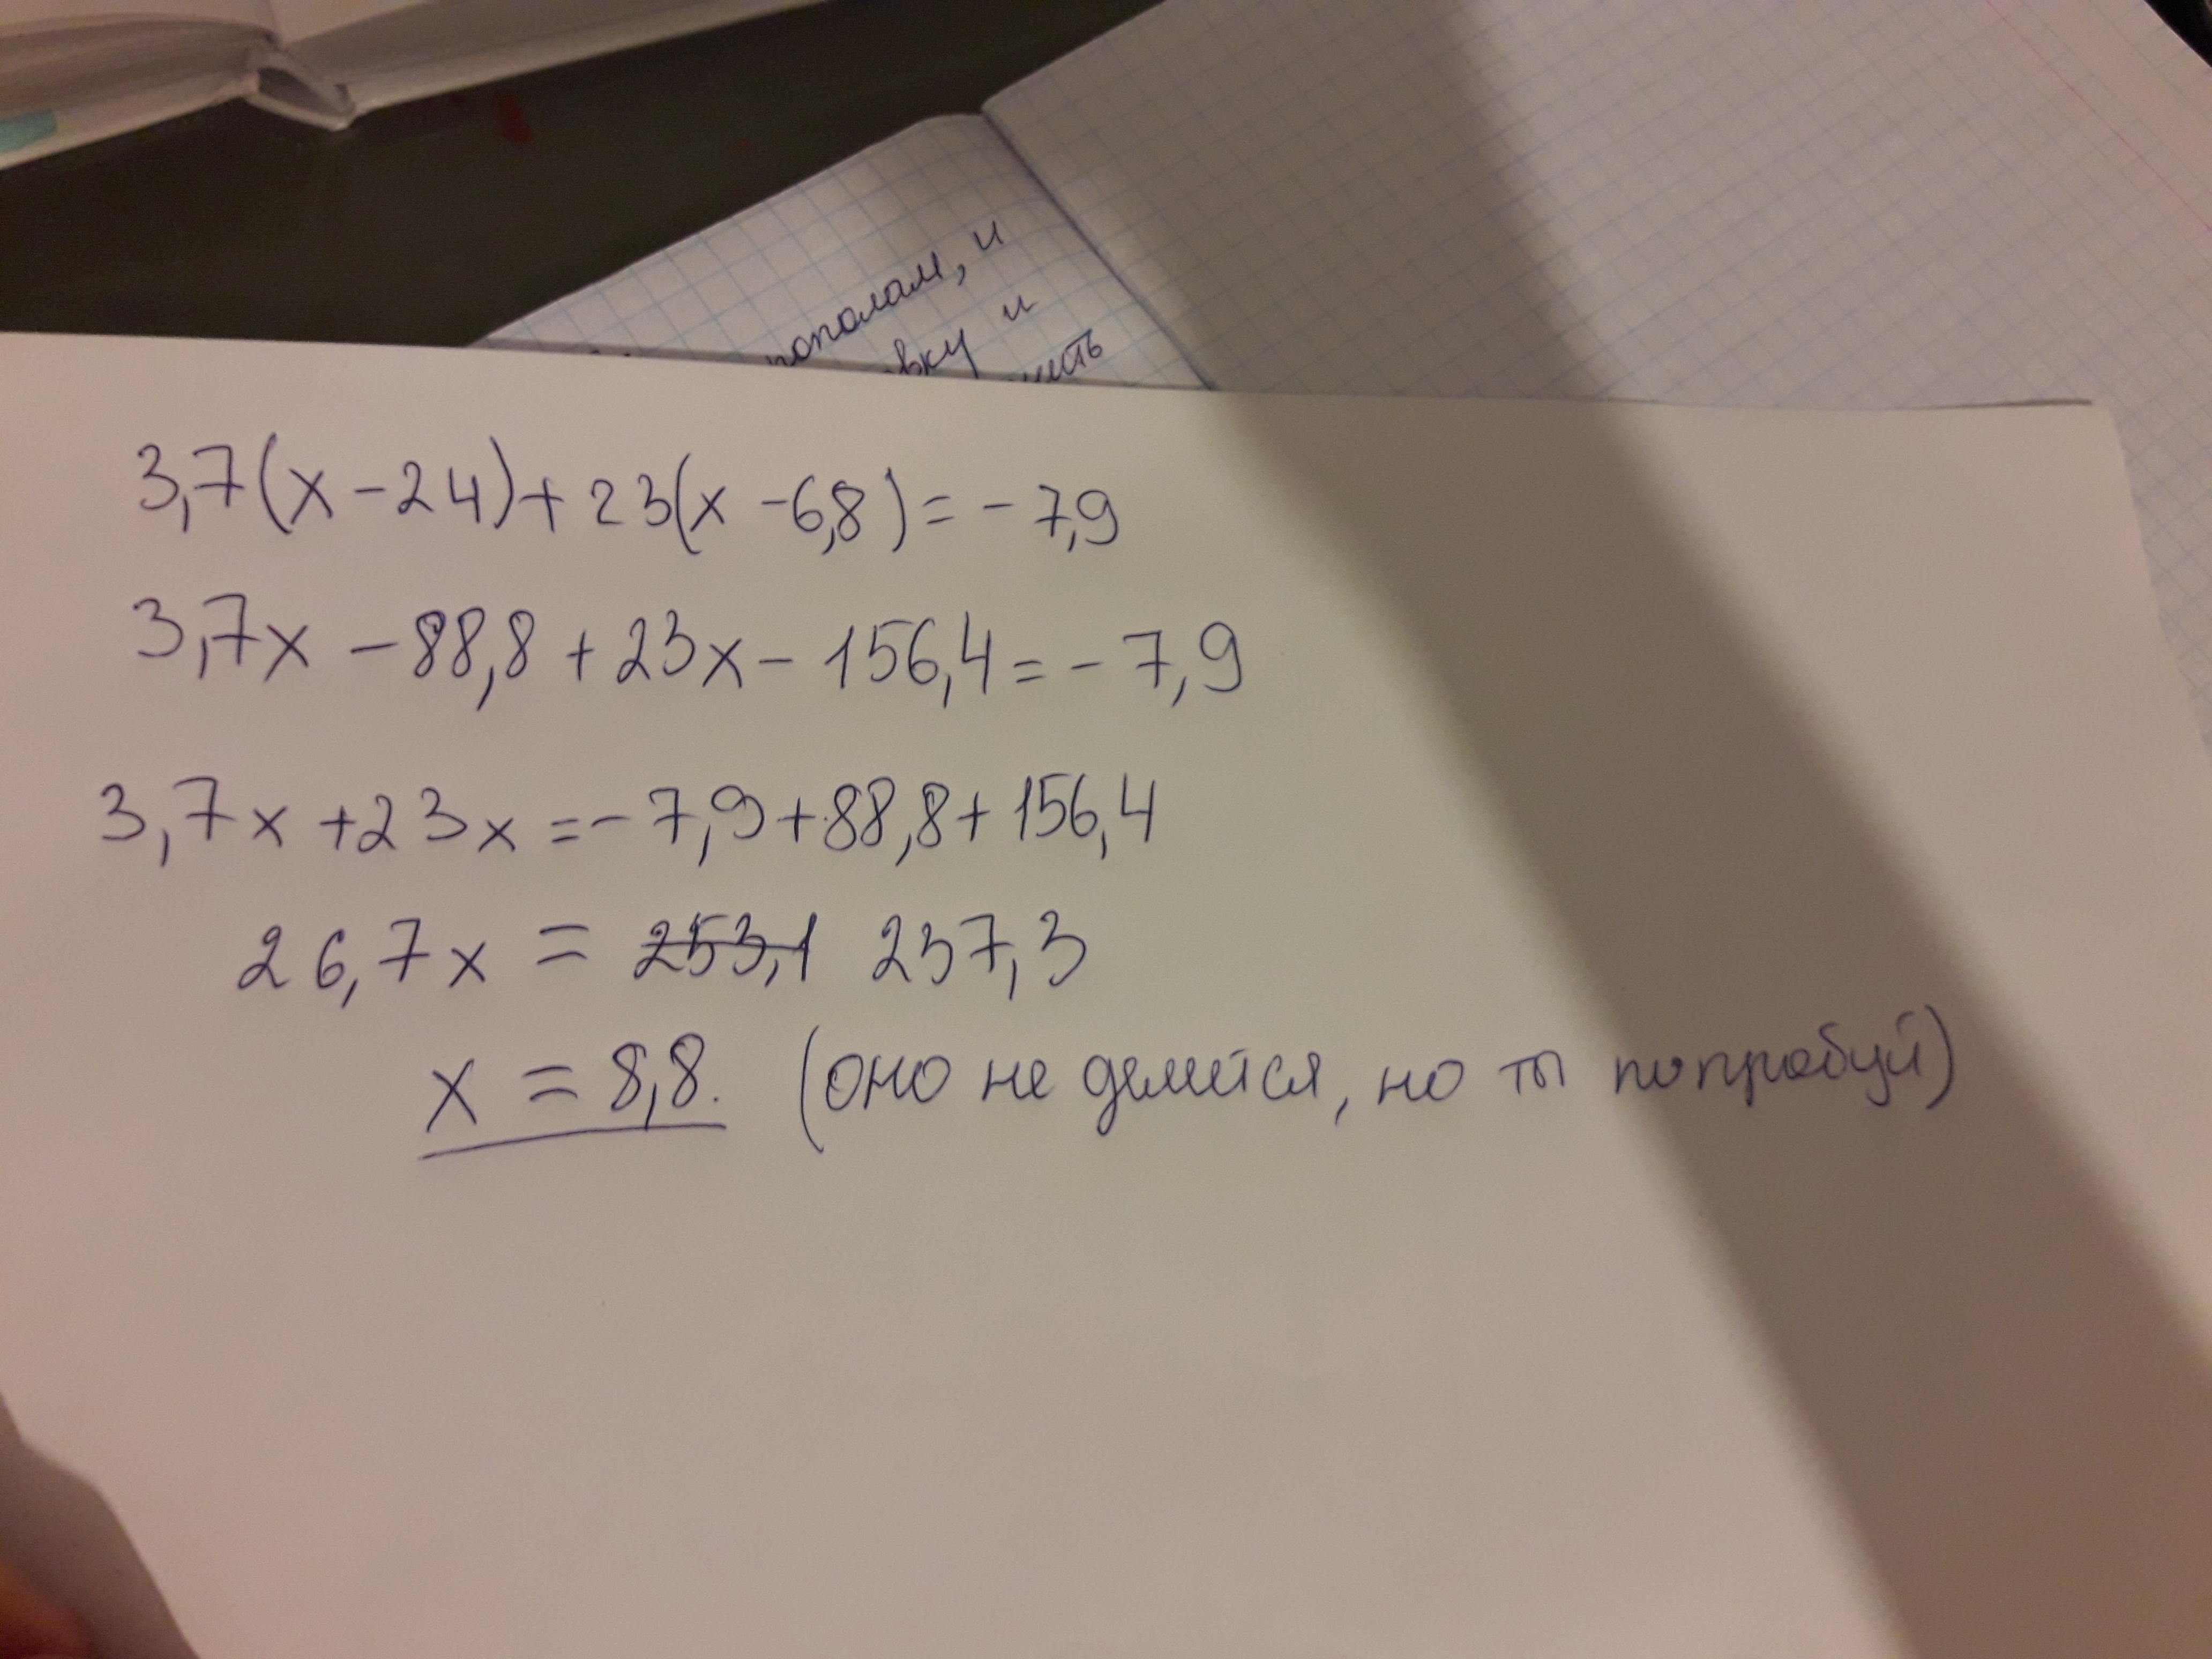 пополам, и
вку и
3,7(x-24)+23(x-6,8)=-7,9
3,7x-88,8+23x-156,4=-7,9
3,7x+23x=-7,9+88,8+156,4
26,7x = 253,1 237,3
x = 8,8. (оно не делится, но ты попробуй)